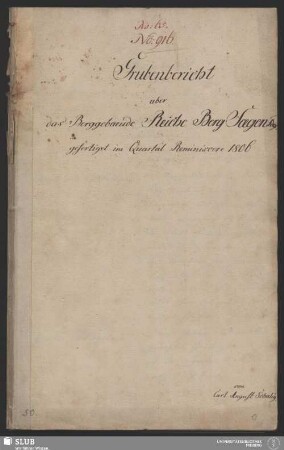 No: 916
Grubenbericht
über
das Berggebäude Reiche Berg Seegen
gefertiget im Quartal Reminiscere 1806
von
Carl August
SLUB
Wir führen Wissen.
UNIVERSITÄTSBIBLIOTHEK
FREIBERG